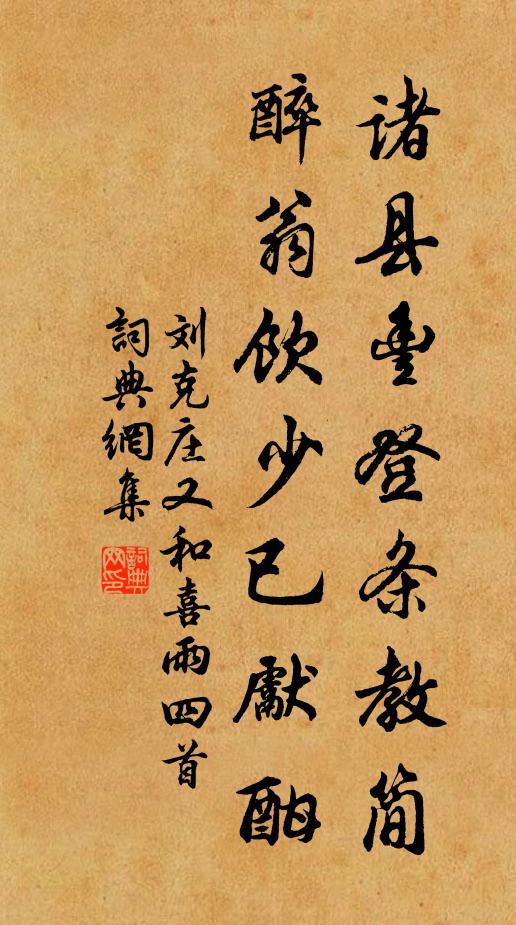 诸县豊登条教简
醉翁饮少已献酣
刘克庄又和喜雨四首
词典网集
詞典網印